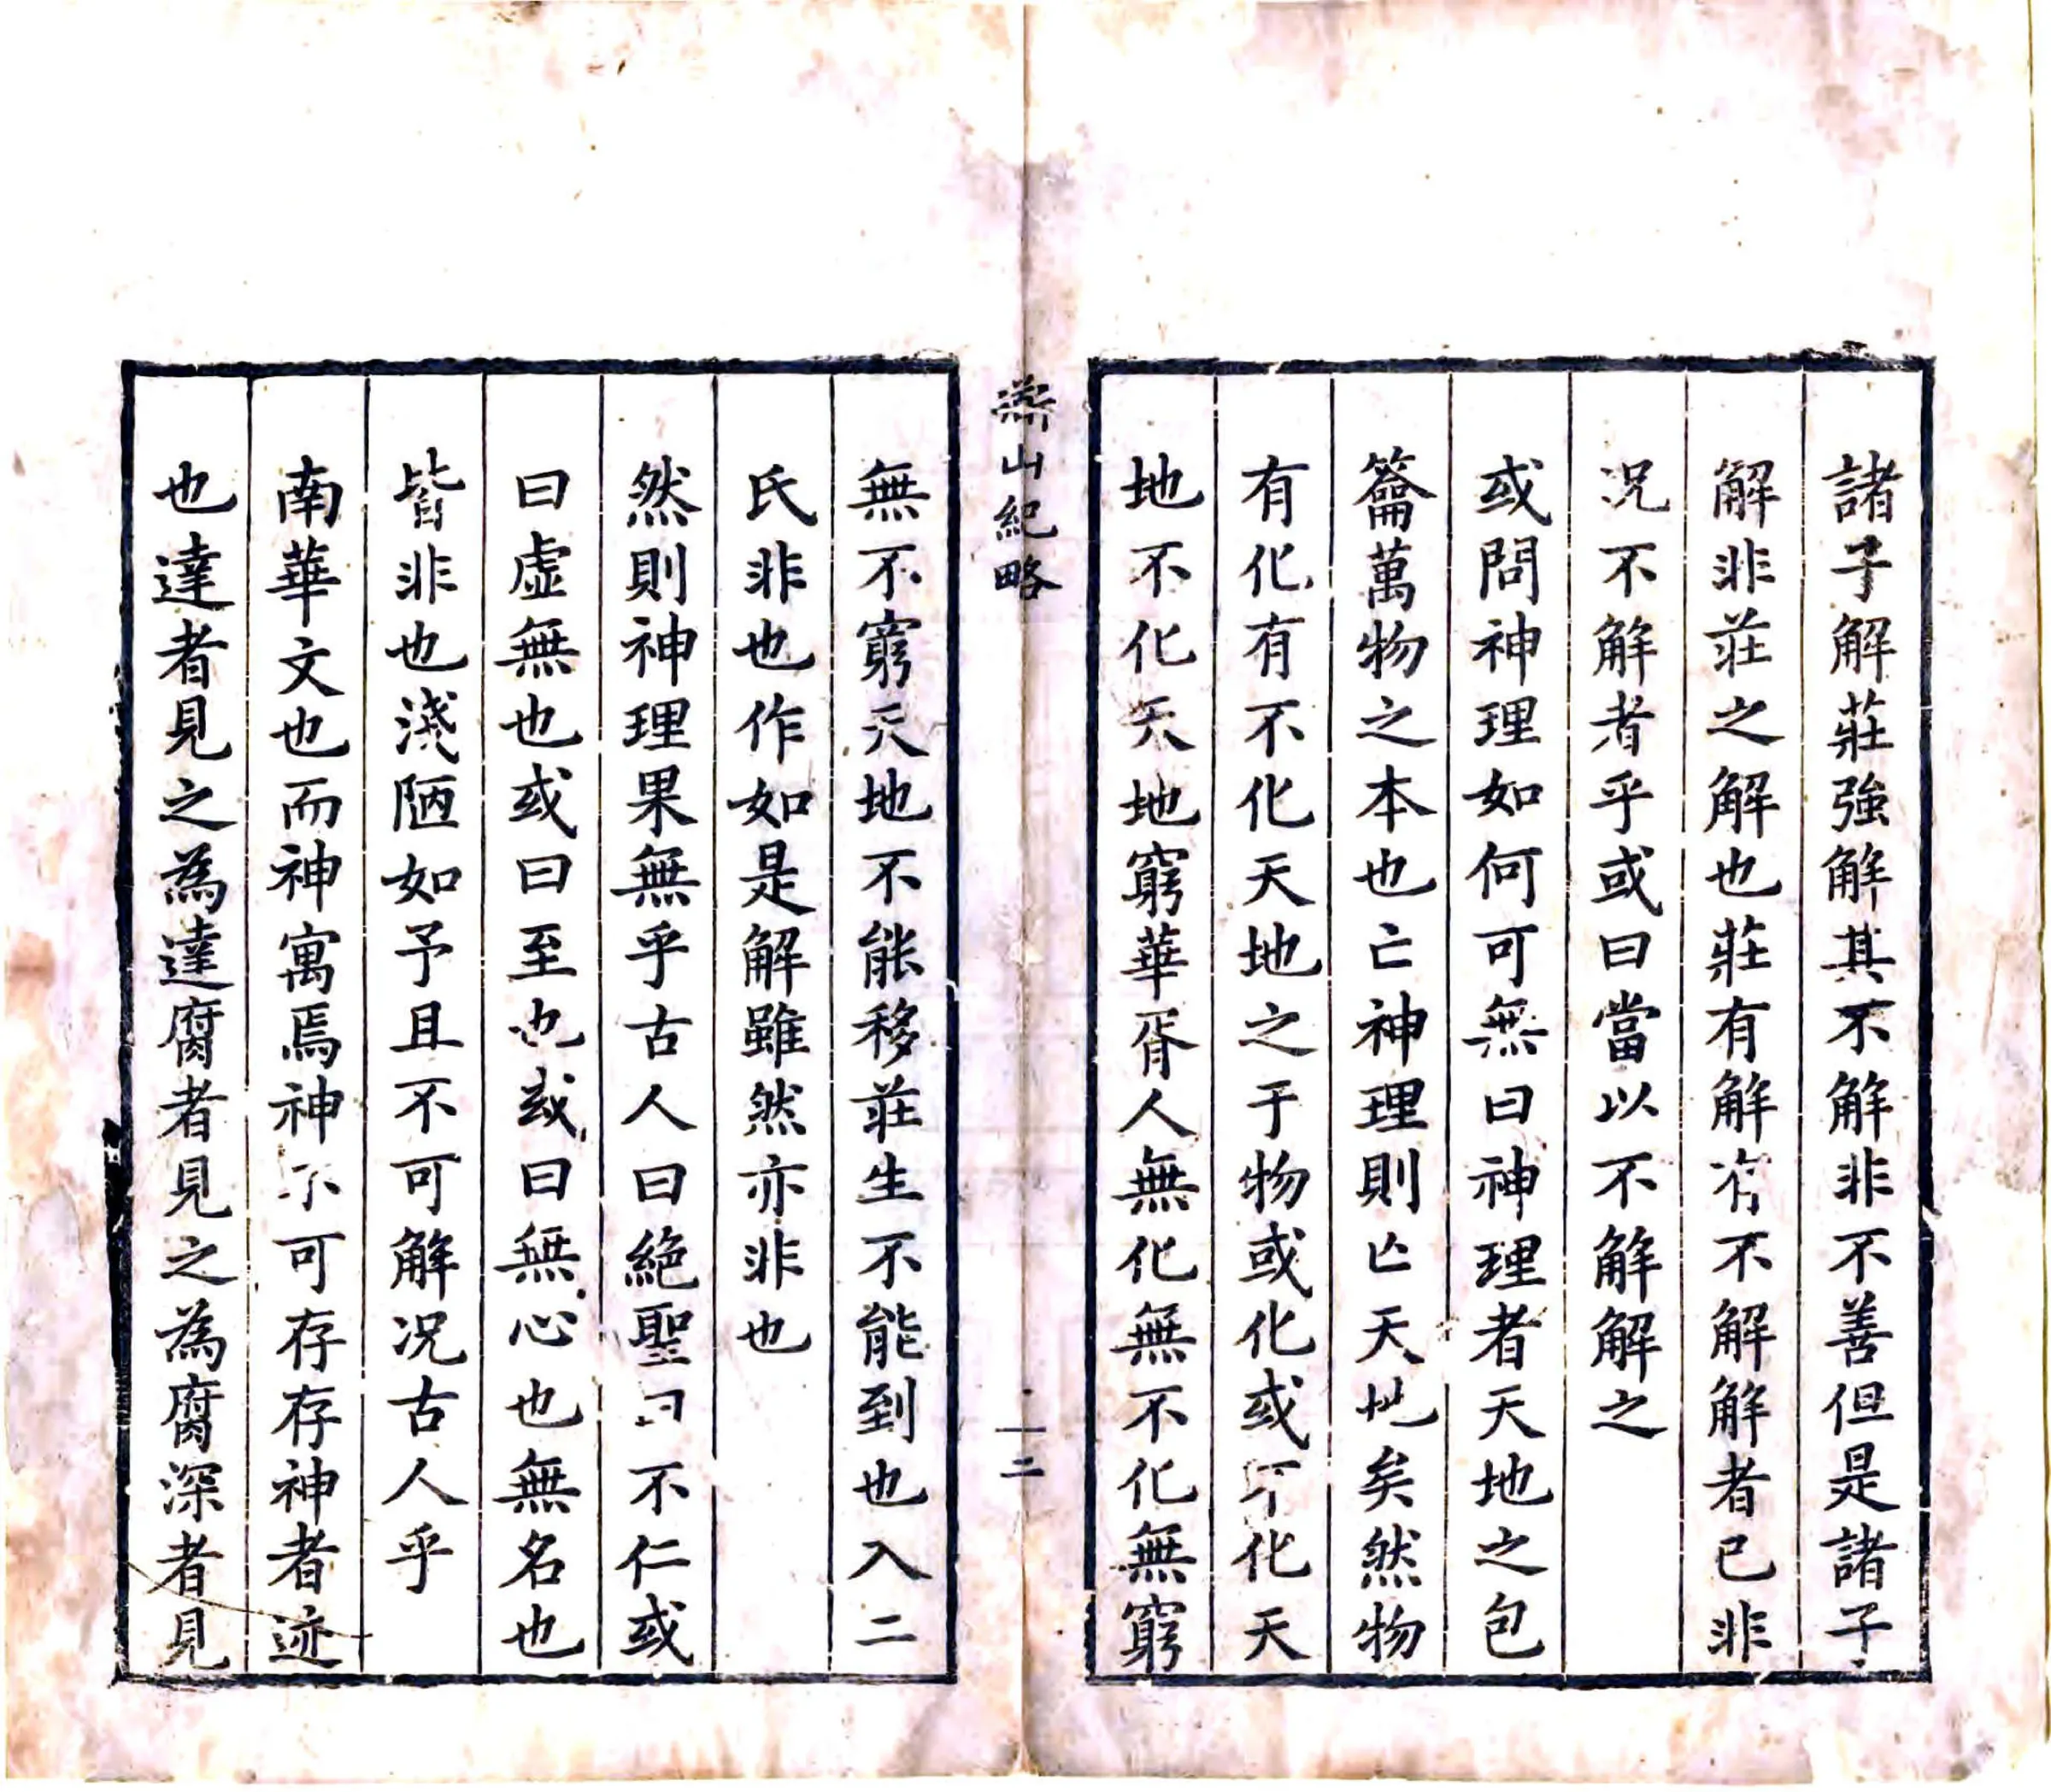 諸子解莊強解其不解非不善但是諸子
解非莊之解也莊有解有不解解者已非
况不解者乎或曰當以不解解之
或問神理如何可無曰神理者天地之包
籥萬物之本也亡神理則亡天地矣然物
有化有不化天地之于物或化或不化天
地不化天地窮華胥人無化無不化無窮
山紀略
二
無不窮天地不能移莊生不能到也入二
氏非也作如是解雖然亦非也
然則神理果無乎古人曰絕聖曰不仁或
曰虛無也或曰至也或曰無心也無名也
皆非也淺陋如予且不可解况古人乎
南華文也而神寓焉神不可存存神者迹
也達者見之為達腐者見之為腐深者見